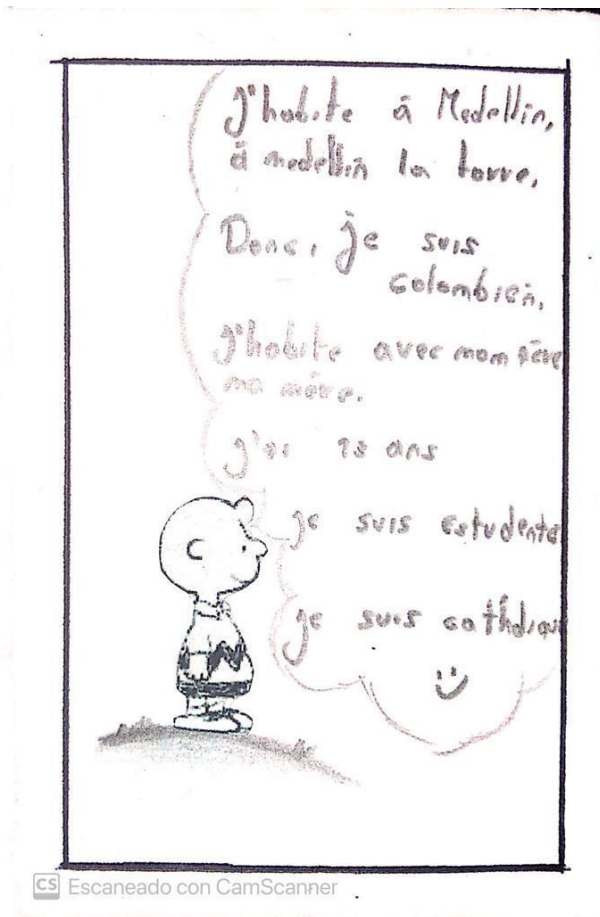 J'habite à Medellin,
à medellin la torre.
Donc, je suis
colombien,
J'habite avec mom père
ma mère.
J'ai 18 ans
je suis estudente
je suis cathdique
CS Escaneado con CamScanner